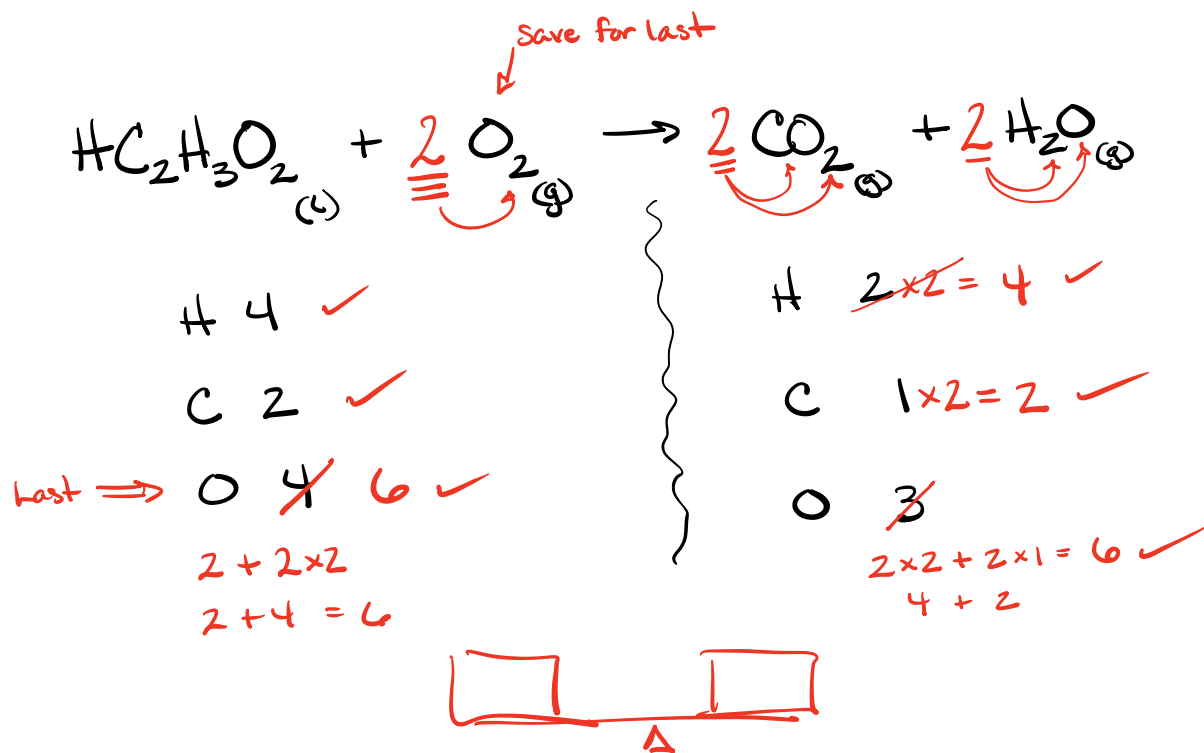 save for last
HC₂H₃O₂(l) + 2 O₂(g) → 2 CO₂(g) + 2 H₂O(g)
H 4 ✓
C 2 ✓
Last ⇒ O 4 6 ✓
2 + 2×2
2 + 4 = 6
H 2×2 = 4 ✓
C 1×2 = 2 ✓
O 3
2×2 + 2×1 = 6 ✓
4 + 2